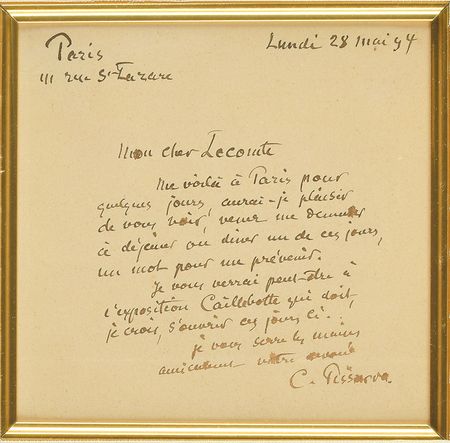 Paris
111 rue St-Lazare
Lundi 28 mai 94
Mon cher Lecomte
Me voilà à Paris pour
quelques jours, aurai-je plaisir
de vous voir! venez me demander
à déjeuner ou diner un de ces jours,
un mot pour me prévenir.
Je vous verrai peut-être à
l'exposition Caillebotte qui doit
je crois, s'ouvrir ces jours ci..
je vous serre les mains
amicalement votre
C. Pissarro